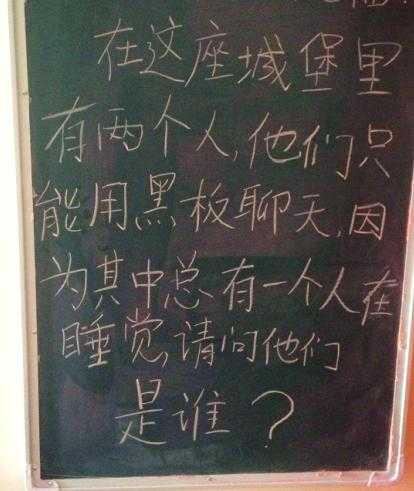 在这座城堡里
有两个人,他们只
能用黑板聊天,因
为其中总有一个人在
睡觉,请问他们
是谁?